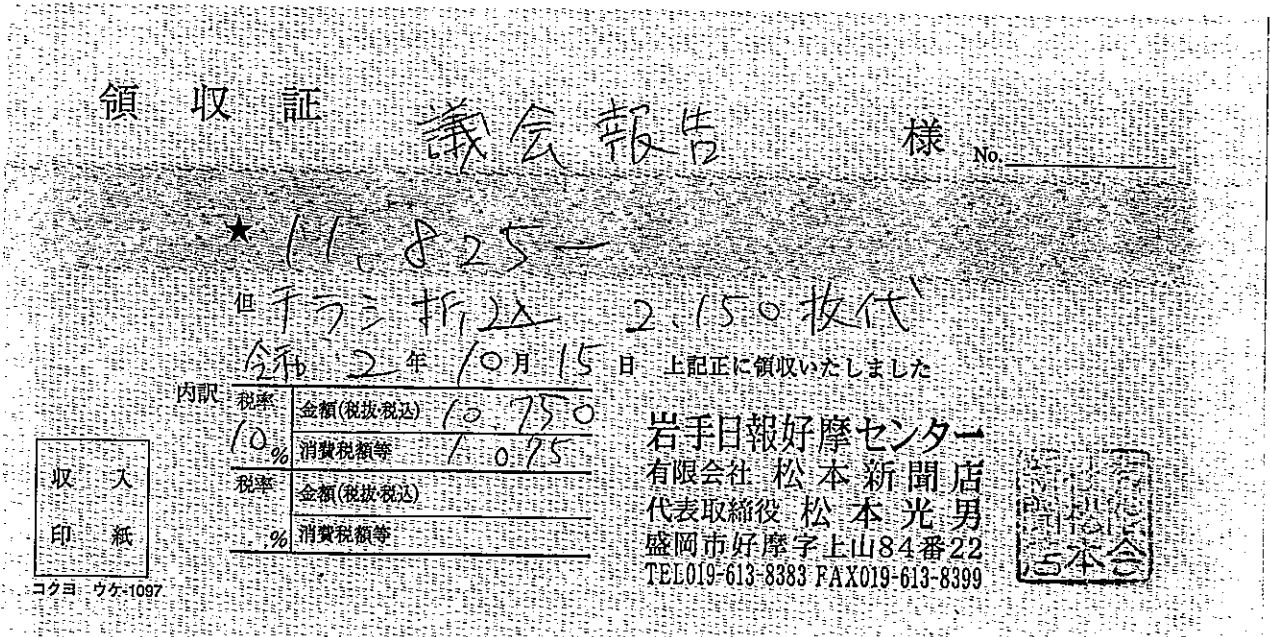 領収証 議会報告 様 No.
★ 11,825—
但 チラシ折込 2.150枚代
令和 2年 10月 15日 上記正に領収いたしました
内訳 税率 10% 金額(税抜・税込) 10.750
消費税額等 1.075
税率 % 金額(税抜・税込)
消費税額等
収入印紙
コクヨ ウケ-1097
岩手日報好摩センター
有限会社 松本新聞店
代表取締役 松本光男
盛岡市好摩字上山84番22
TEL019-613-8383 FAX019-613-8399